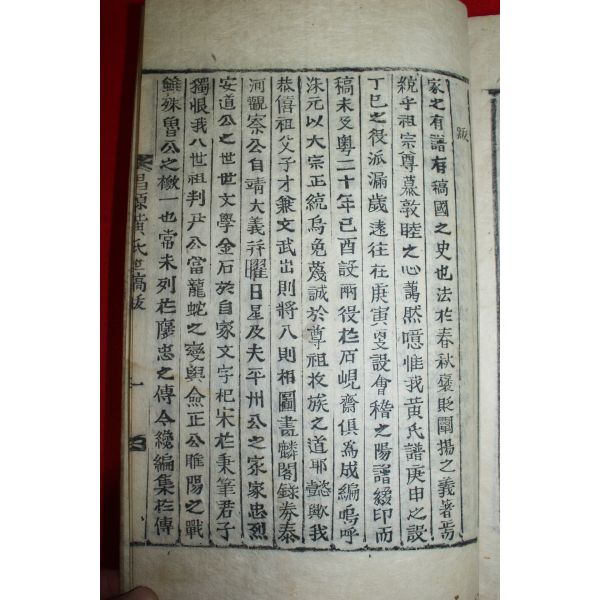 跋
家之有譜有稿國之史也法於春秋褒貶闡揚之義著焉
統乎祖宗尊慕敦睦之心藹然噫惟我黃氏譜庚申之設
丁巳之役派漏歲遠往在庚寅更設會稽之陽譜綴印而
稿未及粤二十年己酉設兩役於石峴齋俱爲成編嗚呼
洙元以大宗正統烏免蔑誠於尊祖收族之道耶懿歟我
恭僖祖父子才兼文武出則將入則相圖畫麟閣錄券泰
河觀察公自靖大義幷曜日星及夫平州公之家家忠烈
安道公之世世文學金石於自家文字杞宋於秉筆君子
獨恨我八世祖判尹公當龍蛇之變與僉正公睢陽之戰
雖殊魯公之檄一也常未列於褒忠之傳今纔編集於傳
昌原黃氏世稿跋 一